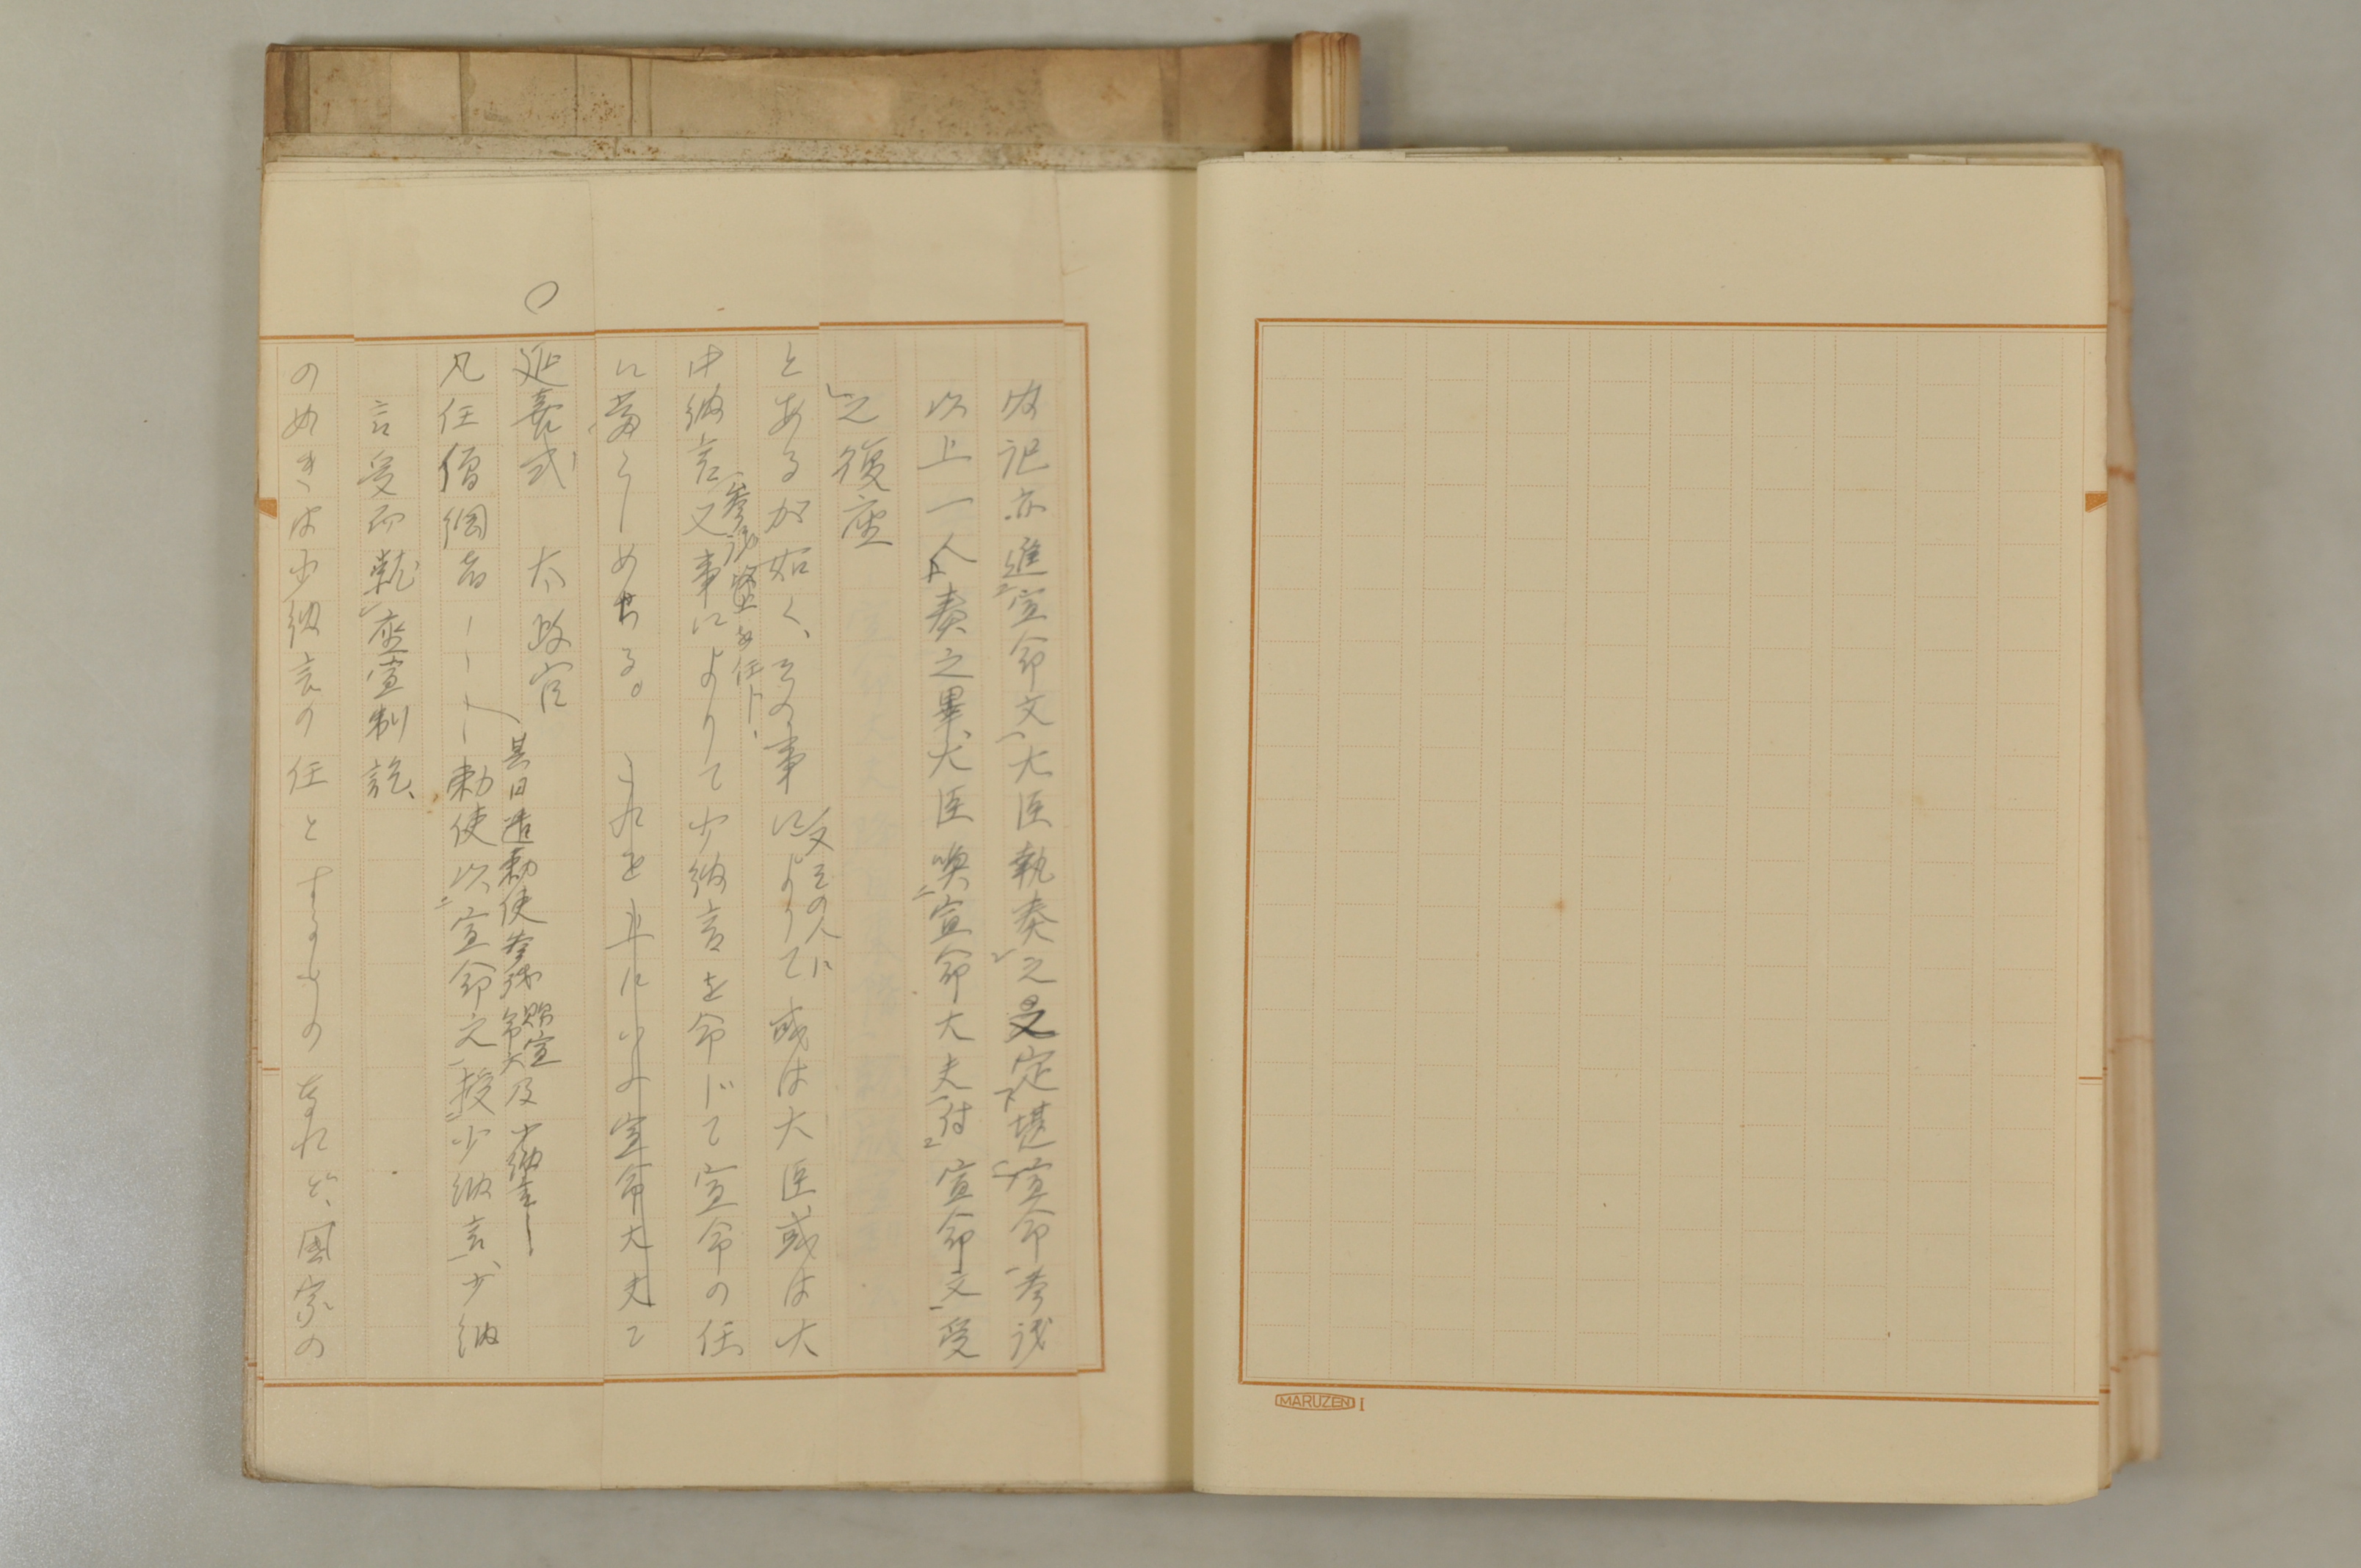 内記亦進宣命文大臣執奏之更定堪宣命参議
以上一人奏之畢大臣喚宣命大夫付宣命文受
之復座
とある如く、その事によりて或は大臣或は大
又その人に
中納言又事によりて少納言を命じて宣命の任
参議
に當らしめらる。これを単にいふ宣命大夫て
延喜式 太政官
其日遣勅使参議賜宣命大及少納言
凡任僧綱者 勅使以宣命文授少納言、少納
言受而就座宣制訖、
のときは少納言の任とするものなれど、国家の
MARUZEN I